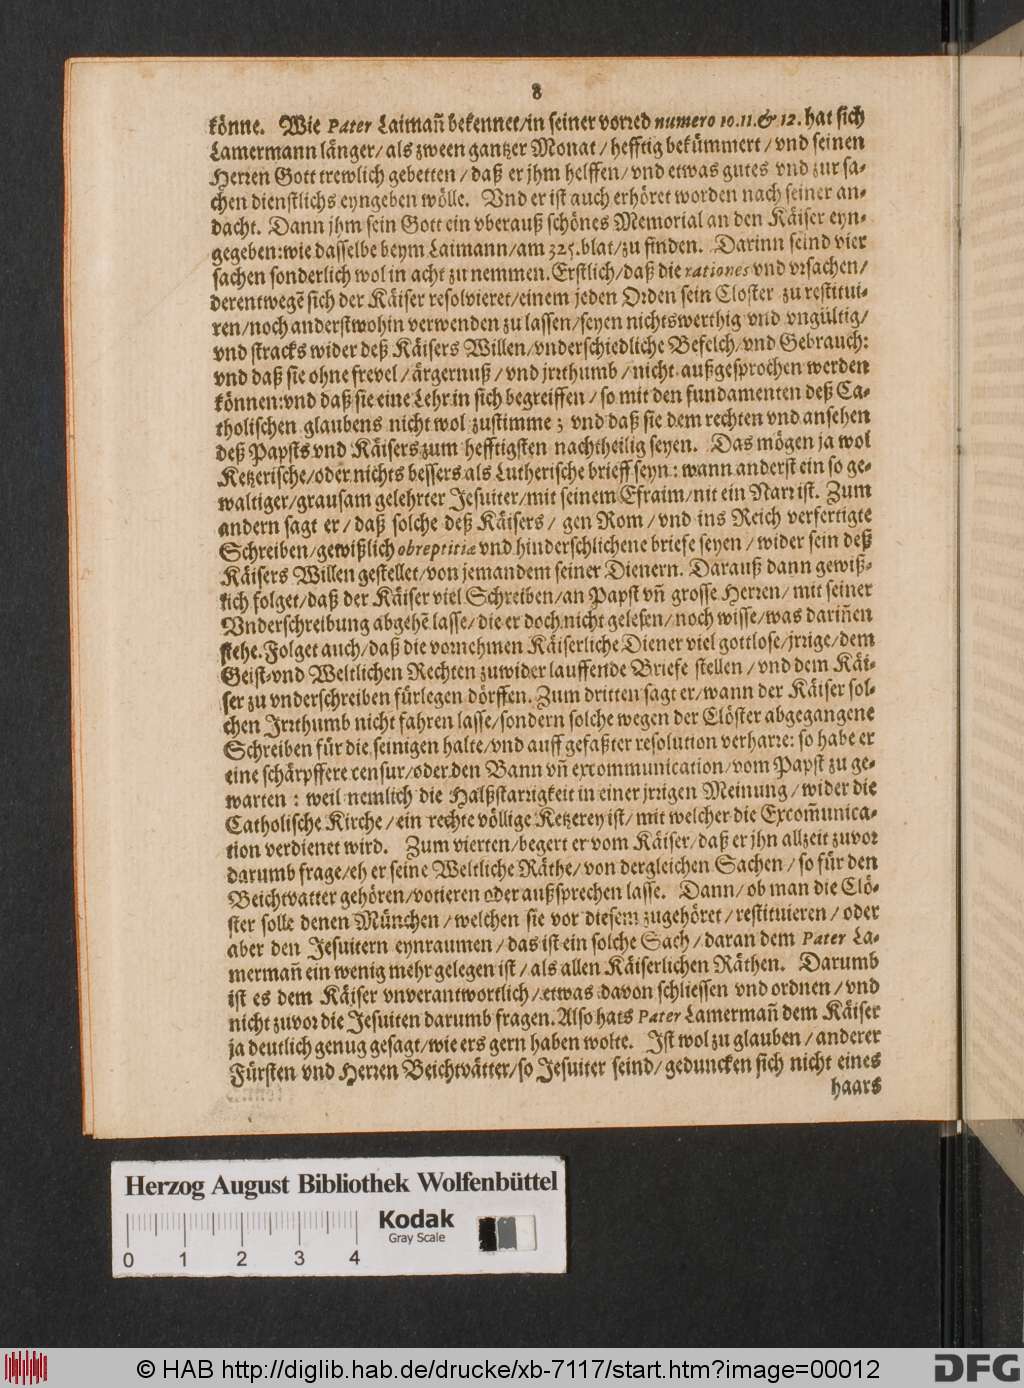 8
könne. Wie Pater Laimañ bekennet/in seiner vorred numero 10.11.& 12. hat sich
Lamermann länger/als zween gantzer Monat/hefftig bekümmert/vnd seinen
Herren Gott trewlich gebetten/daß er jhm helffen/vnd etwas gutes vnd zur sa-
chen dienstlichs eyngeben wölle. Vnd er ist auch erhöret worden nach seiner an-
dacht. Dann jhm sein Gott ein vberauß schönes Memorial an den Käiser eyn-
gegeben:wie dasselbe beym Laimann/am 325.blat/zu finden. Darinn seind vier
sachen sonderlich wol in acht zu nemmen. Erstlich/daß die rationes vnd vrsachen/
derentwegẽ sich der Käiser resolvieret/einem jeden Orden sein Closter zu restitui-
ren/noch anderstwohin verwenden zu lassen/seyen nichtswerthig vnd vngültig/
vnd stracks wider deß Käisers Willen/vnderschiedliche Befelch/vnd Gebrauch:
vnd daß sie ohne frevel/ärgernuß/vnd jrrthumb/nicht außgesprochen werden
können:vnd daß sie eine Lehr in sich begreiffen/so mit den fundamenten deß Ca-
tholischen glaubens nicht wol zustimme; vnd daß sie dem rechten vnd ansehen
deß Papsts vnd Käisers zum hefftigsten nachtheilig seyen. Das mögen ja wol
Ketzerische/oder nichts bessers als Lutherische brieff seyn: wann anderst ein so ge-
waltiger/grausam gelehrter Jesuiter/mit seinem Efraim/nit ein Narr ist. Zum
andern sagt er/daß solche deß Käisers/gen Rom/vnd ins Reich verfertigte
Schreiben/gewißlich obreptitiæ vnd hinderschlichene briefe seyen/wider sein deß
Käisers Willen gestellet/von jemandem seiner Dienern. Darauß dann gewiß-
lich folget/daß der Käiser viel Schreiben/an Papst vñ grosse Herren/mit seiner
Vnderschreibung abgehẽ lasse/die er doch nicht gelesen/noch wisse/was dariñen
stehe. Folget auch/daß die vornehmen Käiserliche Diener viel gottlose/jrrige/dem
Geist-vnd Weltlichen Rechten zuwider lauffende Briefe stellen/vnd dem Käi-
ser zu vnderschreiben fürlegen dörffen. Zum dritten sagt er/wann der Käiser sol-
chen Jrrthumb nicht fahren lasse/sondern solche wegen der Clöster abgegangene
Schreiben für die seinigen halte/vnd auff gefaßter resolution verharre: so habe er
eine schärpffere censur/oder den Bann vñ excommunication/vom Papst zu ge-
warten: weil nemlich die Halßstarrigkeit in einer jrrigen Meinung/wider die
Catholische Kirche/ein rechte völlige Ketzerey ist/mit welcher die Excom̃unica-
tion verdienet wird. Zum vierten/begert er vom Käiser/daß er jhn allzeit zuvor
darumb frage/eh er seine Weltliche Räthe/von dergleichen Sachen/so für den
Beichtvatter gehören/votieren oder außsprechen lasse. Dann/ob man die Clö-
ster solle denen München/welchen sie vor diesem zugehöret/restituieren/oder
aber den Jesuitern eynraumen/das ist ein solche Sach/daran dem Pater La-
mermañ ein wenig mehr gelegen ist/als allen Käiserlichen Räthen. Darumb
ist es dem Käiser vnverantwortlich/etwas davon schliessen vnd ordnen/vnd
nicht zuvor die Jesuiten darumb fragen. Also hats Pater Lamermañ dem Käiser
ja deutlich genug gesagt/wie ers gern haben wolte. Ist wol zu glauben/anderer
Fürsten vnd Herren Beichtvätter/so Jesuiter seind/geduncken sich nicht eines
haars
Herzog August Bibliothek Wolfenbüttel
Kodak
Gray Scale
0 1 2 3 4
© HAB http://diglib.hab.de/drucke/xb-7117/start.htm?image=00012
DFG